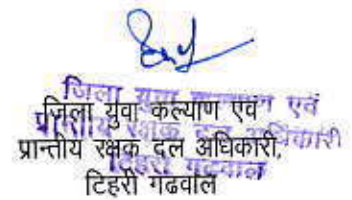 जिला युवा कल्याण एवं
प्रान्तीय रक्षक दल अधिकारी,
टिहरी गढवाल
जिला युवा कल्याण एवं
प्रान्तीय रक्षक दल अधिकारी
टिहरी गढवाल